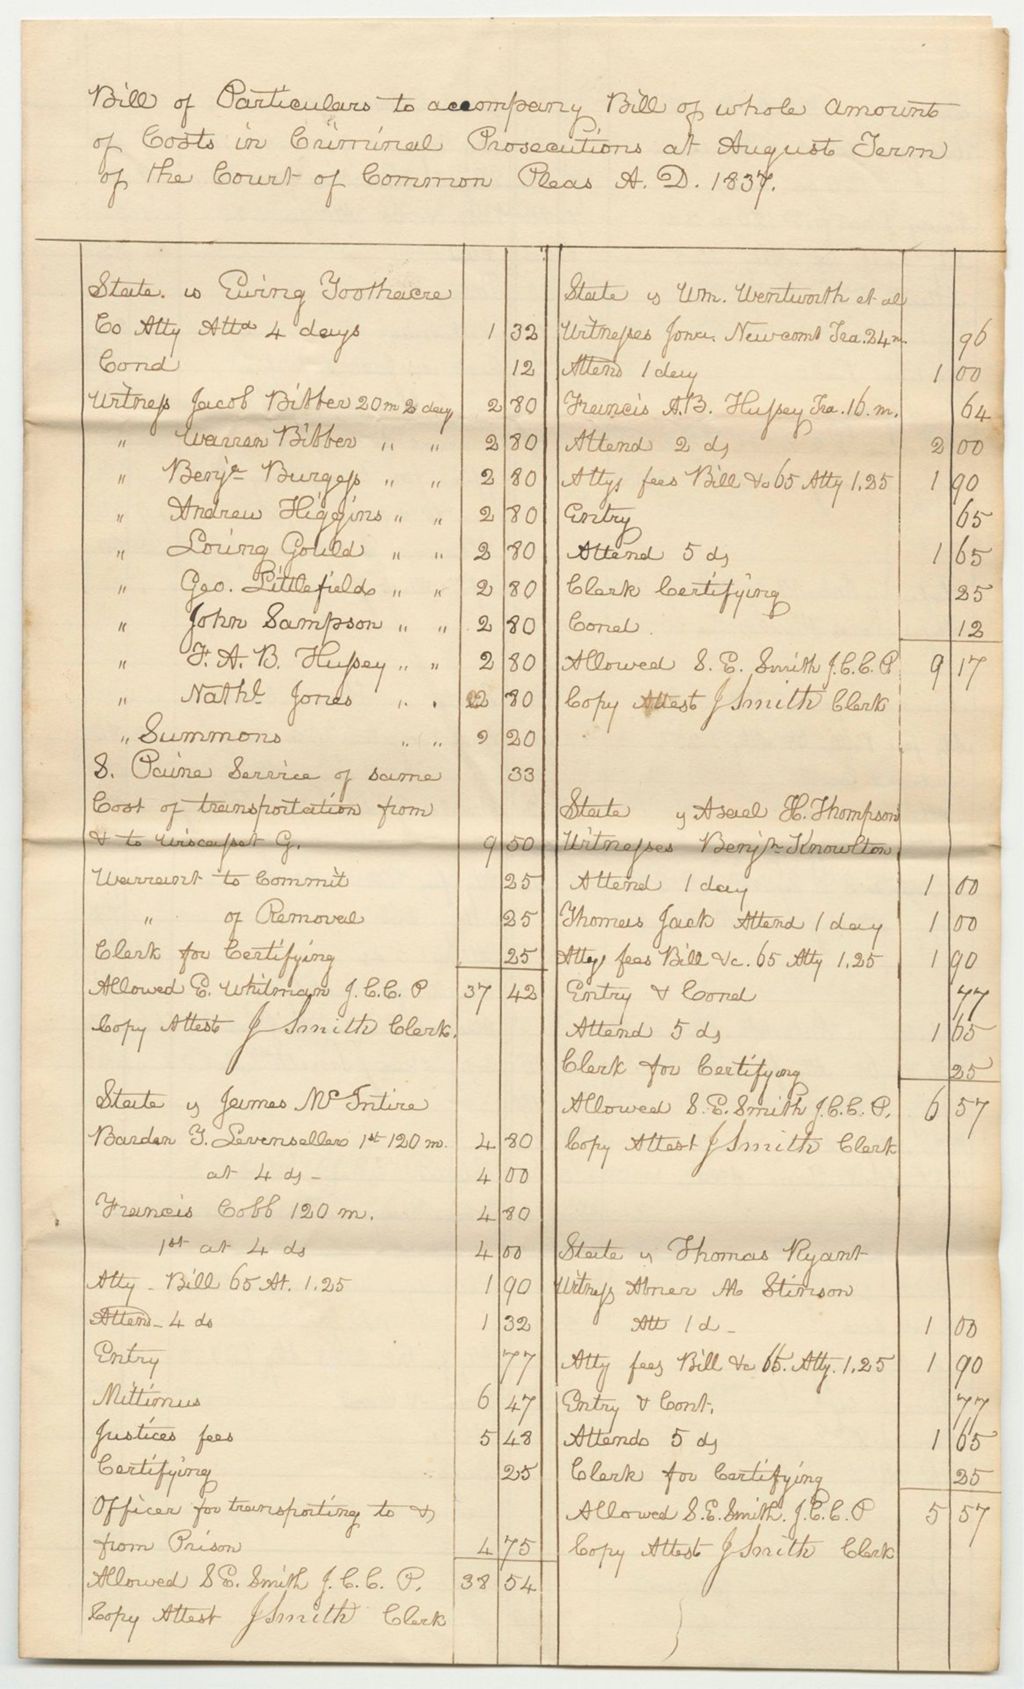 Bill of Particulars to accompany Bill of whole amount
of Costs in Criminal Prosecutions at August Term
of the Court of Common Pleas A. D. 1837.
State vs Ewing Toothacre
Co Atty Attd 4 days 1 32
Cond 12
Witness Jacob Bibber 20 m 2 day 2 80
" Warren Bibber " " 2 80
" Benjn Burgess " " 2 80
" Andrew Higgins " " 2 80
" Loring Gould " " 2 80
" Geo. Littlefield " " 2 80
" John Sampson " " 2 80
" F. A. B. Hussey " " 2 80
" Nathl Jones " " 2 80
" Summons " " 2 20
S. Paine Service of same 33
Cost of transportation from
& to Wiscasset G. 9 50
Warrant to Commit 25
" of Removal 25
Clerk for Certifying 25
Allowed E. Whitman J. C. C. P 37 42
Copy Attest J Smith Clerk.
State vs James Mc Intire
Barden T. Levensellers 1st 120 m. 4 80
at 4 ds - 4 00
Francis Cobb 120 m. 4 80
1st at 4 ds 4 00
Atty - Bill 65 At. 1.25 1 90
Attend - 4 ds 1 32
Entry 77
Mittimus 6 47
Justices fees 5 48
Certifying 25
Officer for transporting to &
from Prison 4 75
Allowed S E. Smith J. C. C. P. 38 54
Copy Attest J Smith Clerk
State vs Wm. Wentworth et al
Witnesses Jona. Newcomb Tra. 24 m. 96
Attend 1 day 1 00
Francis A. B. Hussey Tra. 16. m. 64
Attend 2 ds 2 00
Attys fees Bill &c 65 Atty 1.25 1 90
Entry 65
Attend 5 ds 1 65
Clerk Certifying 25
Cond. 12
Allowed S. E. Smith J. C. C. P 9 17
Copy Attest J Smith Clerk
State vs Asael H. Thompson
Witnesses Benjn Knowlton
Attend 1 day 1 00
Thomas Jack Attend 1 day 1 00
Attys fees Bill &c. 65 Atty 1.25 1 90
Entry & Cond 77
Attend 5 ds 1 65
Clerk for Certifying 25
Allowed S. E. Smith J. C. C. P. 6 57
Copy Attest J Smith Clerk
State vs Thomas Ryant
Witness Abner M Stinson
Att 1 d - 1 00
Atty fees Bill &c 65. Atty. 1.25 1 90
Entry & Cont. 77
Attends 5 ds 1 65
Clerk for Certifying 25
Allowed S. E. Smith. J. C. C. P 5 57
Copy Attest J Smith Clerk